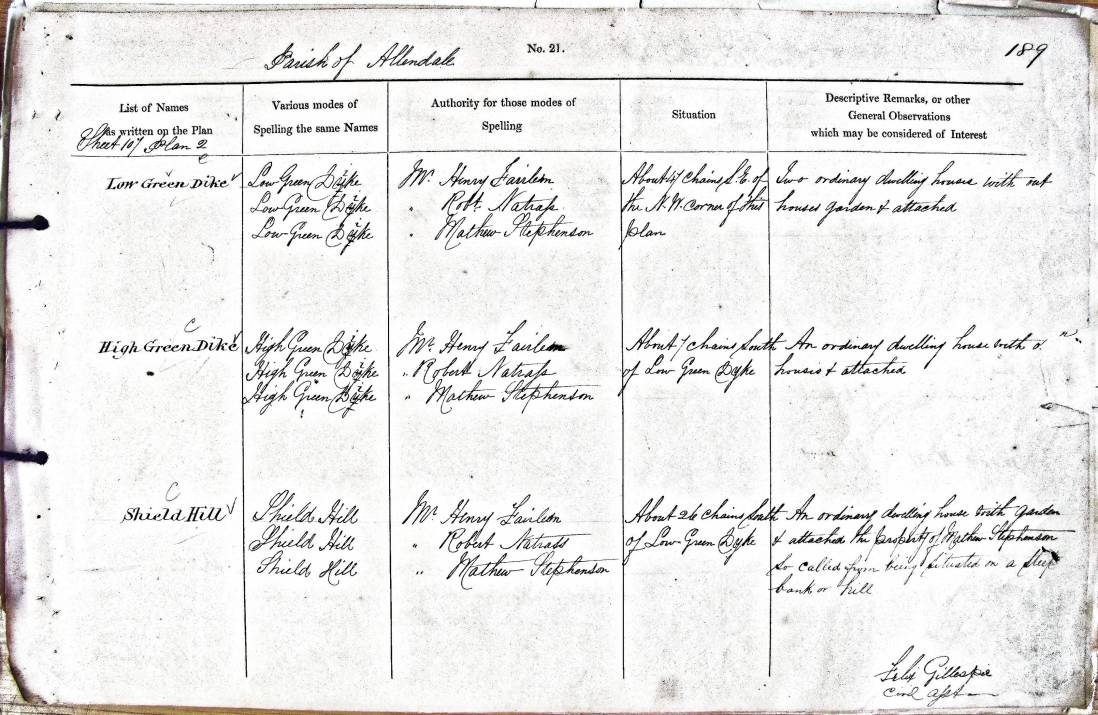 Parish of Allendale
No. 21.
189
List of Names
as written on the Plan
Sheet 107 Plan 2
Various modes of
Spelling the same Names
Authority for those modes of
Spelling
Situation
Descriptive Remarks, or other
General Observations
which may be considered of Interest
Low Green Dike
Low Green Dyke
Low Green Dyke
Low Green Dyke
Mr. Henry Fairlem
" Robt. Natrass
" Mathew Stephenson
About 47 chains S.E. of
the N.W. corner of this
Plan
Two ordinary dwelling houses with out
houses garden & attached
High Green Dike
High Green Dyke
High Green Dyke
High Green Dyke
Mr. Henry Fairlem
" Robert Natrass
" Mathew Stephenson
About 7 chains South
of Low Green Dyke
An ordinary dwelling house with
houses & attached
Shield Hill
Shield Hill
Shield Hill
Shield Hill
Mr. Henry Fairlem
" Robert Natrass
" Mathew Stephenson
About 26 chains South
of Low Green Dyke
An ordinary dwelling house with garden
& attached the property of Mathew Stephenson
so called from being situated on a steep
bank or hill
Felix Gillespie
Civil Asst